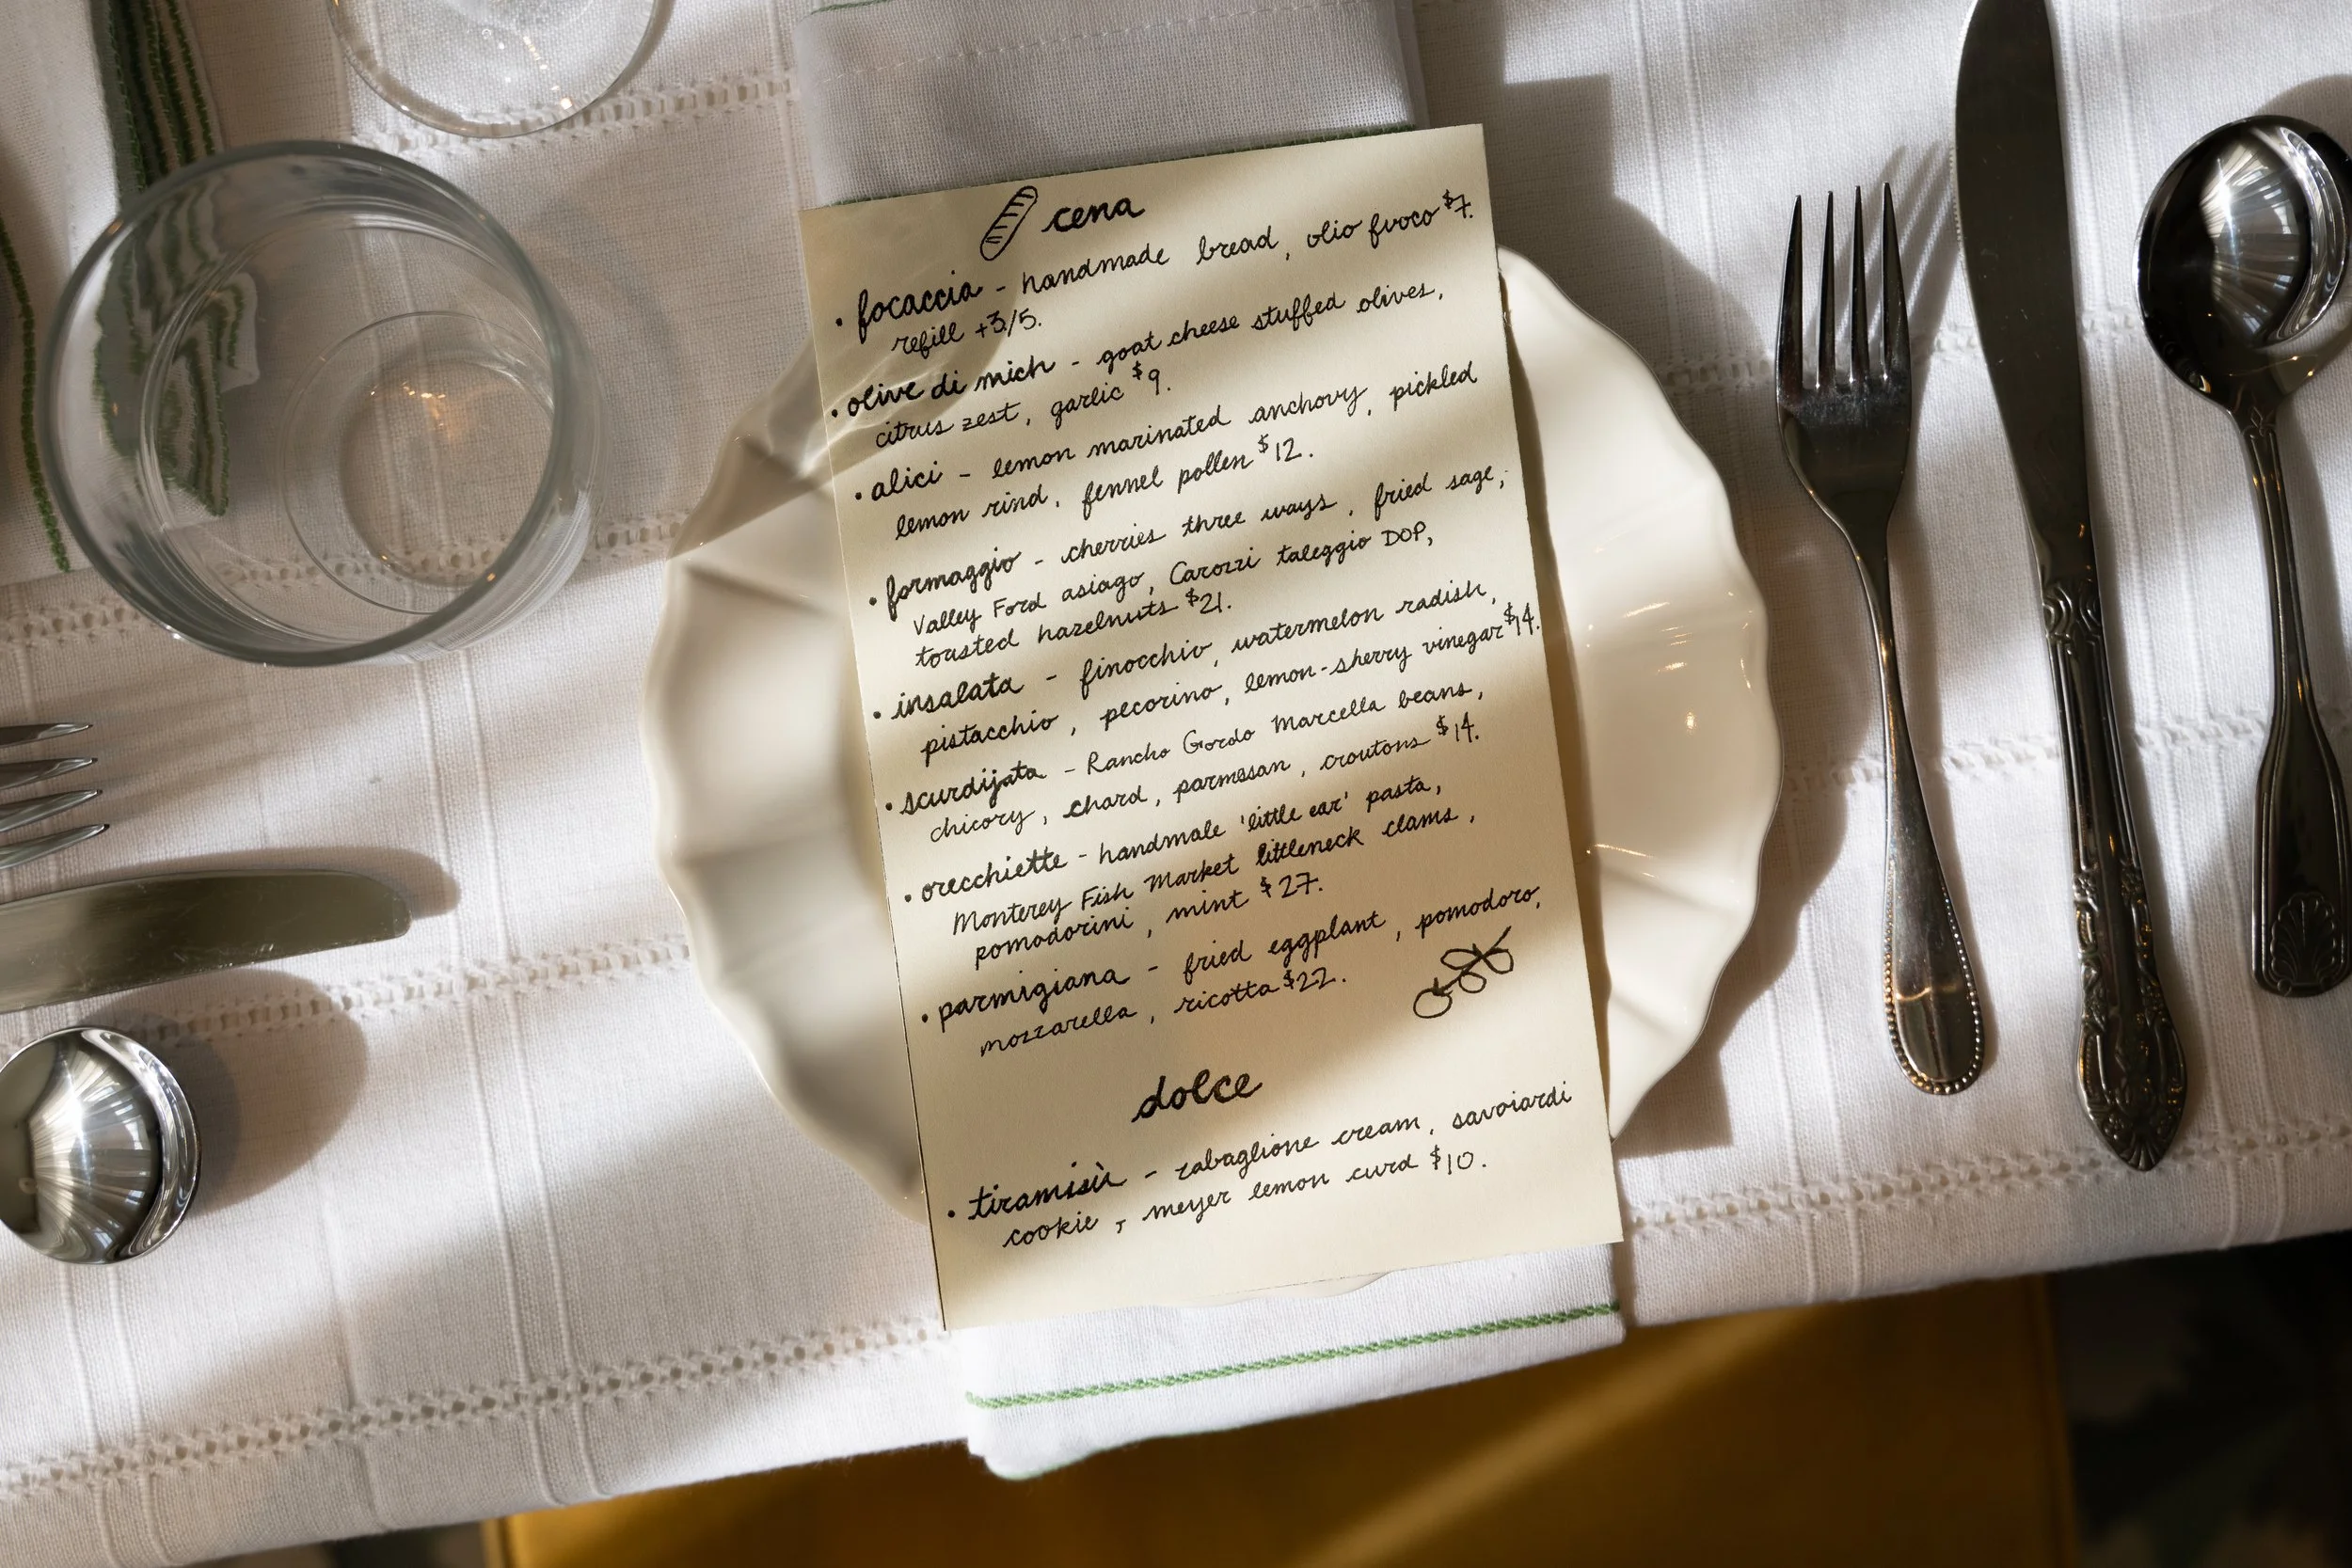 cena
• focaccia - handmade bread, olio fuoco $7.
refill +3/5.
• olive di mich - goat cheese stuffed olives,
citrus zest, garlic $9.
• alici - lemon marinated anchovy, pickled
lemon rind, fennel pollen $12.
• formaggio - cherries three ways, fried sage,
Valley Ford asiago, Carozzi taleggio DOP,
toasted hazelnuts $21.
• insalata - finocchio, watermelon radish,
pistacchio, pecorino, lemon-sherry vinegar $14.
• scurdijata - Rancho Gordo Marcella beans,
chicory, chard, parmesan, croutons $14.
• orecchiette - handmale 'little ear' pasta,
Monterey Fish Market littleneck clams,
pomodorini, mint $27.
• parmigiana - fried eggplant, pomodoro,
mozzarella, ricotta $22.
dolce
• tiramisù - zabaglione cream, savoiardi
cookie, meyer lemon curd $10.